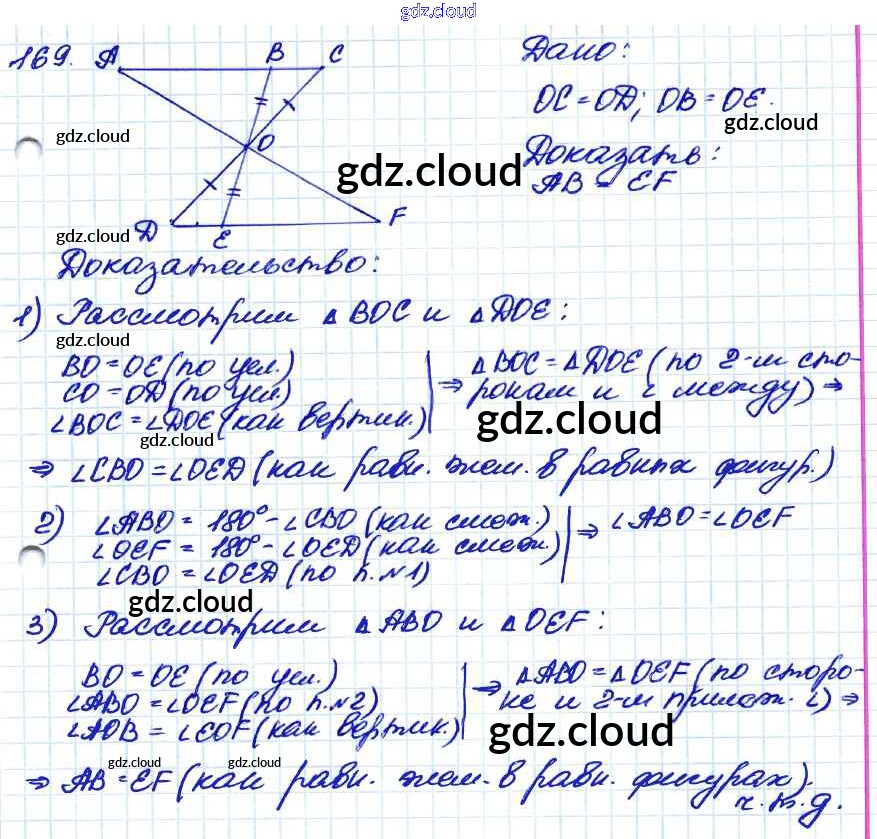 gdz.cloud
169. A B C Дано:
OC = OD; OB = OE.
gdz.cloud gdz.cloud
O Доказать:
gdz.cloud
AB = EF
D E F
gdz.cloud
Доказательство:
1) Рассмотрим △ BOC и △ DOE:
gdz.cloud
BO = OE (по усл.)
CO = OD (по усл)
∠BOC = ∠DOE (как вертик.)
⇒ △BOC = △DOE (по 2-м сто-
ронам и ∠ между) ⇒
gdz.cloud gdz.cloud
⇒ ∠CBO = ∠OED (как равн. элем. в равных фигур.)
2) ∠ABO = 180° - ∠CBO (как смеж.)
∠OEF = 180° - ∠OED (как смеж.)
∠CBO = ∠OED (по п.№1)
⇒ ∠ABO = ∠OEF
gdz.cloud
3) Рассмотрим △ ABO и △ OEF:
BO = OE (по усл.)
∠ABO = ∠OEF (по п.№2)
∠AOB = ∠EOF (как вертик.)
⇒ △ABO = △OEF (по сторо-
не и 2-м прилеж. ∠) ⇒
gdz.cloud
gdz.cloud gdz.cloud
⇒ AB = EF (как равн. элем. в равн. фигурах).
ч.т.д.